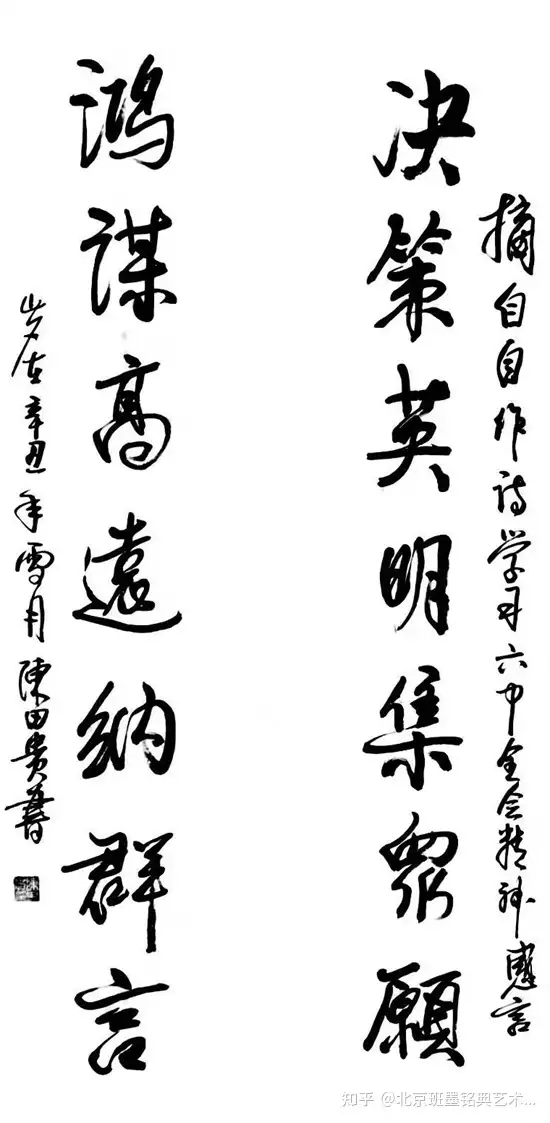 摘自自作诗学习六中全会精神感言
决策英明集眾願
鸿谋高遠纳群言
岁在辛丑年雪月陳田贵書
知乎 @北京班墨铭典艺术...